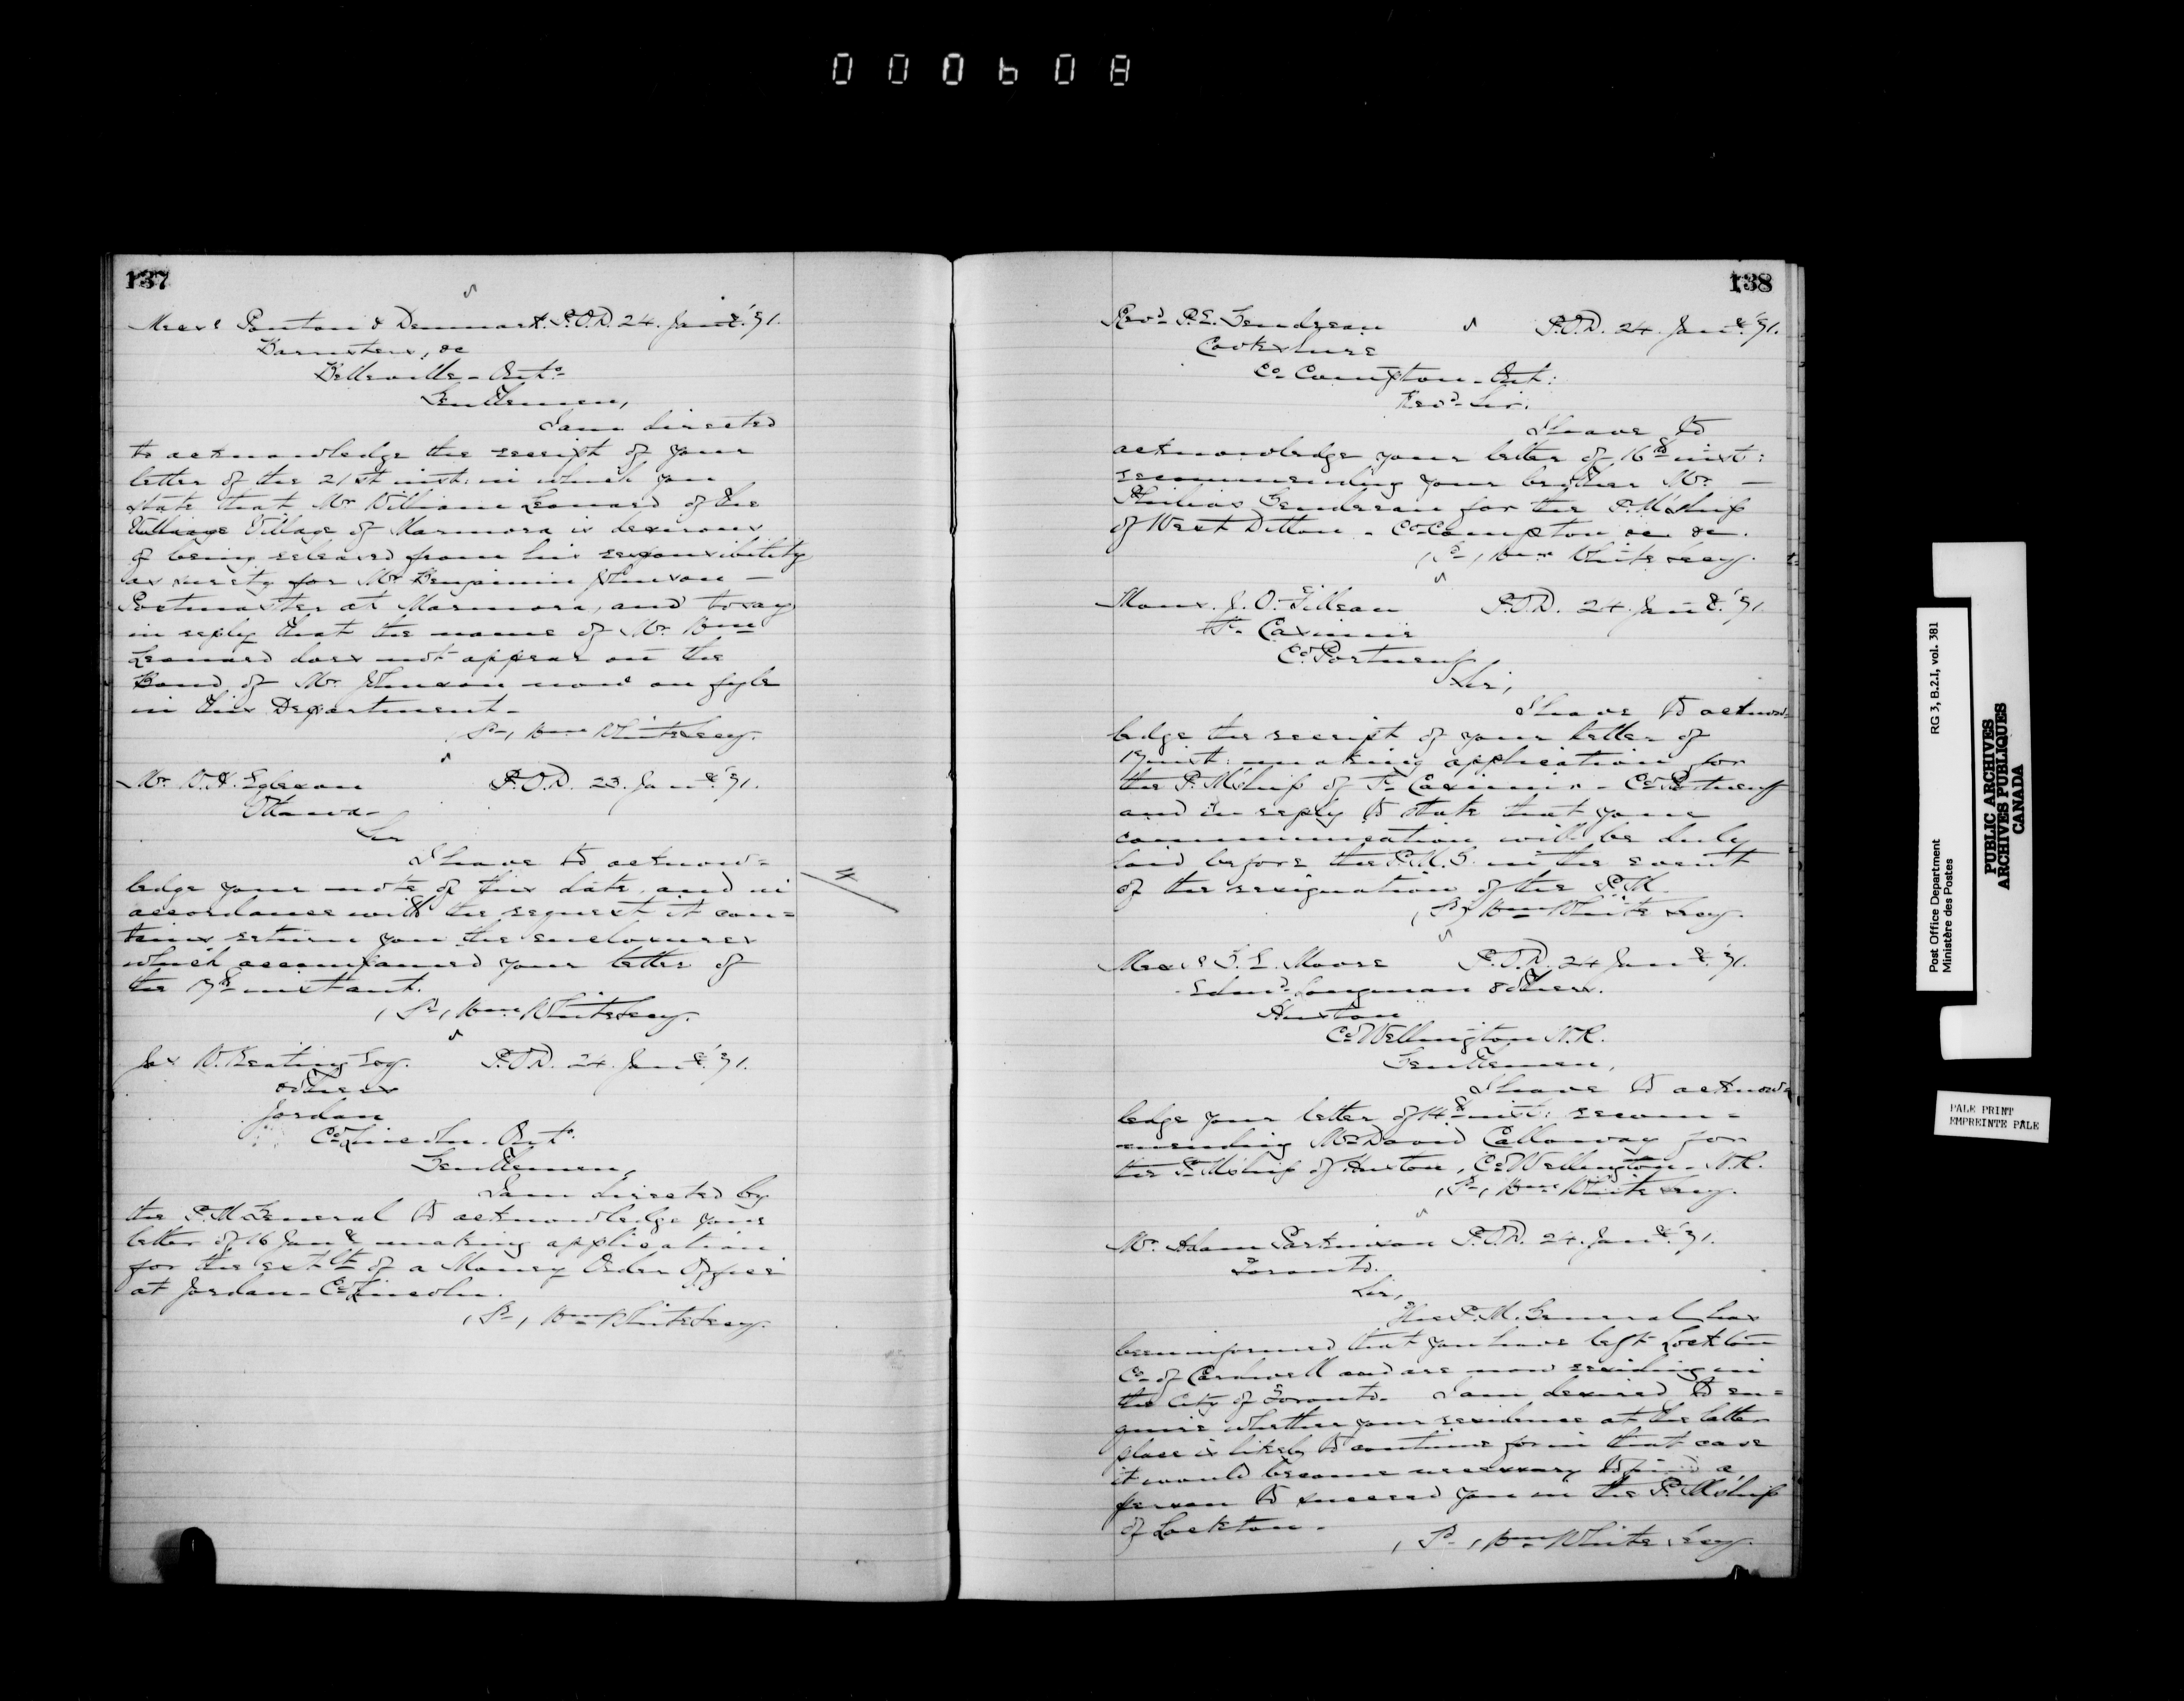 000608
137
Messrs Ponton & Denmark. P.O.D. 24. Jany. '91.
Barristers, &c
Belleville - Onto
Gentlemen,
I am directed
to acknowledge the receipt of your
letter of the 21st inst: in which you
state that Mr William Leonard of the
Village Village of Marmora is desirous
of being released from his responsibility
as surety for Mr. Benjamin Johnson -
Postmaster at Marmora, and to say
in reply that the name of Mr. Wm
Leonard does not appear on the
Bond of Mr Johnson now on fyle
in this Department -
(Sd) Wm White Secy.
Mr. W.H. Egleson P.O.D. 23. Jany. '91.
Ottawa -
Sir
I have to acknow=
ledge your note of this date, and in
accordance with the request it con=
tains return you the enclosures
which accompanied your letter of
the 17th instant.
(Sd) Wm White Secy.
Jas W. Keating Esq. P.O.D. 24. Jany. '91.
& others
Jordan
Co Lincoln. Onto.
Gentlemen,
I am directed by
the P.M. General to acknowledge your
letter of 16 Jany making application
for the estbt of a Money Order Office
at Jordan - Co Lincoln.
(Sd) Wm White Secy.
138
Revd P.E. Gendreau P.O.D. 24. Jany. '91.
Cookshire
Co Compton - Ont:
Revd Sir.
I have to
acknowledge your letter of 16th inst:
recommending your brother Mr. -
Gendreau for the P.M'ship
of West Ditton - Co Compton &c &c.
(Sd) Wm White Secy.
Mons. J.O. Filleau P.O.D. 24. Jany. '91.
St. Casimir
Co Portneuf
Sir,
I have to acknow=
ledge the receipt of your letter of
17 inst: making application for
the P.M'ship of St Casimir - Co Portneuf
and in reply to state that your
communication will be duly
laid before the P.M.G. in the event
of the resignation of the P.M.
(Sd) Wm White Secy.
Messrs T.E. Moore P.O.D. 24 Jany. '91.
Edmd. Longman & others.
Huston
Co Wellington N.R.
Gentlemen,
I have to acknow=
ledge your letter of 14th inst: recom=
mending Mr David Calloway for
the P.M'ship of Huston, Co Wellington - N.R.
(Sd) Wm White Secy.
Mr. Adam Parkinson P.O.D. 24. Jany. '91.
Toronto.
Sir,
The P.M. General has
been informed that you have left Lockton
Co of Cardwell and are now residing in
the City of Toronto. I am desired to en=
quire whether your residence at the latter
place is likely to continue for in that case
it would become necessary to find a
person to succeed you in the P.M'ship
of Lockton.
(Sd) Wm White Secy.
Post Office Department RG 3, B.2.I, vol. 381
Ministère des Postes
PUBLIC ARCHIVES
ARCHIVES PUBLIQUES
CANADA
PALE PRINT
EMPREINTE PÂLE